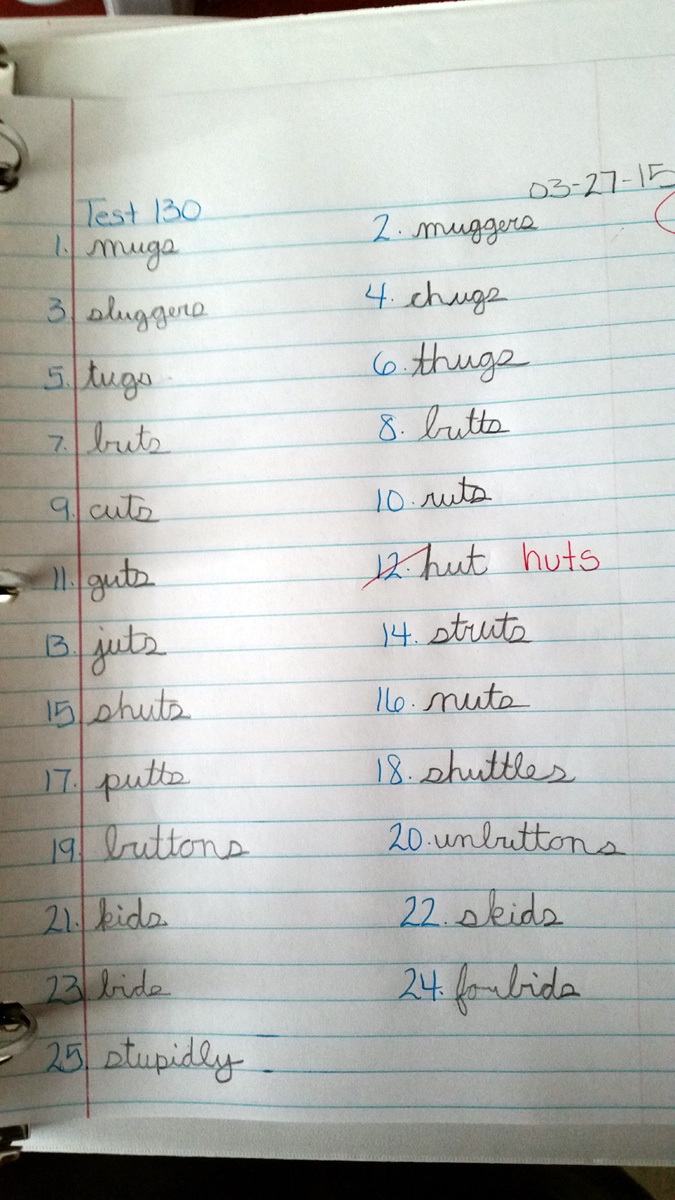 03-27-15
Test 130
1. mugs 2. muggers
3. sluggers 4. chugs
5. tugs 6. thugs
7. buts 8. butts
9. cuts 10. ruts
11. guts 12. hut huts
13. juts 14. struts
15. shuts 16. nuts
17. putts 18. shuttles
19. buttons 20. unbuttons
21. kids 22. skids
23. bids 24. forbids
25. stupidly